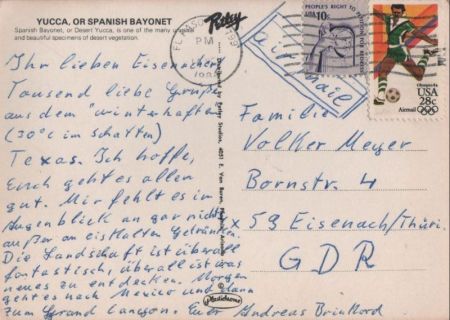 YUCCA, OR SPANISH BAYONET
Spanish Bayonet, or Desert Yucca, is one of the many unusual
and beautiful specimens of desert vegetation.
Ihr lieben Eisenacher
Tausend liebe Grüße
aus dem "winterhaften"
(30°c im Schatten)
Texas. Ich hoffe,
Euch geht es allen
gut. Mir fehlt es im
Augenblick an gar nichts
außer an eiskalten Getränken.
Die Landschaft ist überall
fantastisch, überall ist was
neues zu entdecken. Morgen
geht es nach Mexico und dann
zum Grand Canyon. Euer Andreas
Petley
Distributed by Petley Studios, 4051 E. Van Buren, Phoenix, Arizona
Plastichrome
EL PASO
PM
PEOPLE'S RIGHT TO PETITION FOR REDRESS
USA 10c
Olympics 84
USA
28c
Airmail
Airmail
Familie
Volker Meyer
Bornstr. 4
x 59 Eisenach/Thür.
GDR